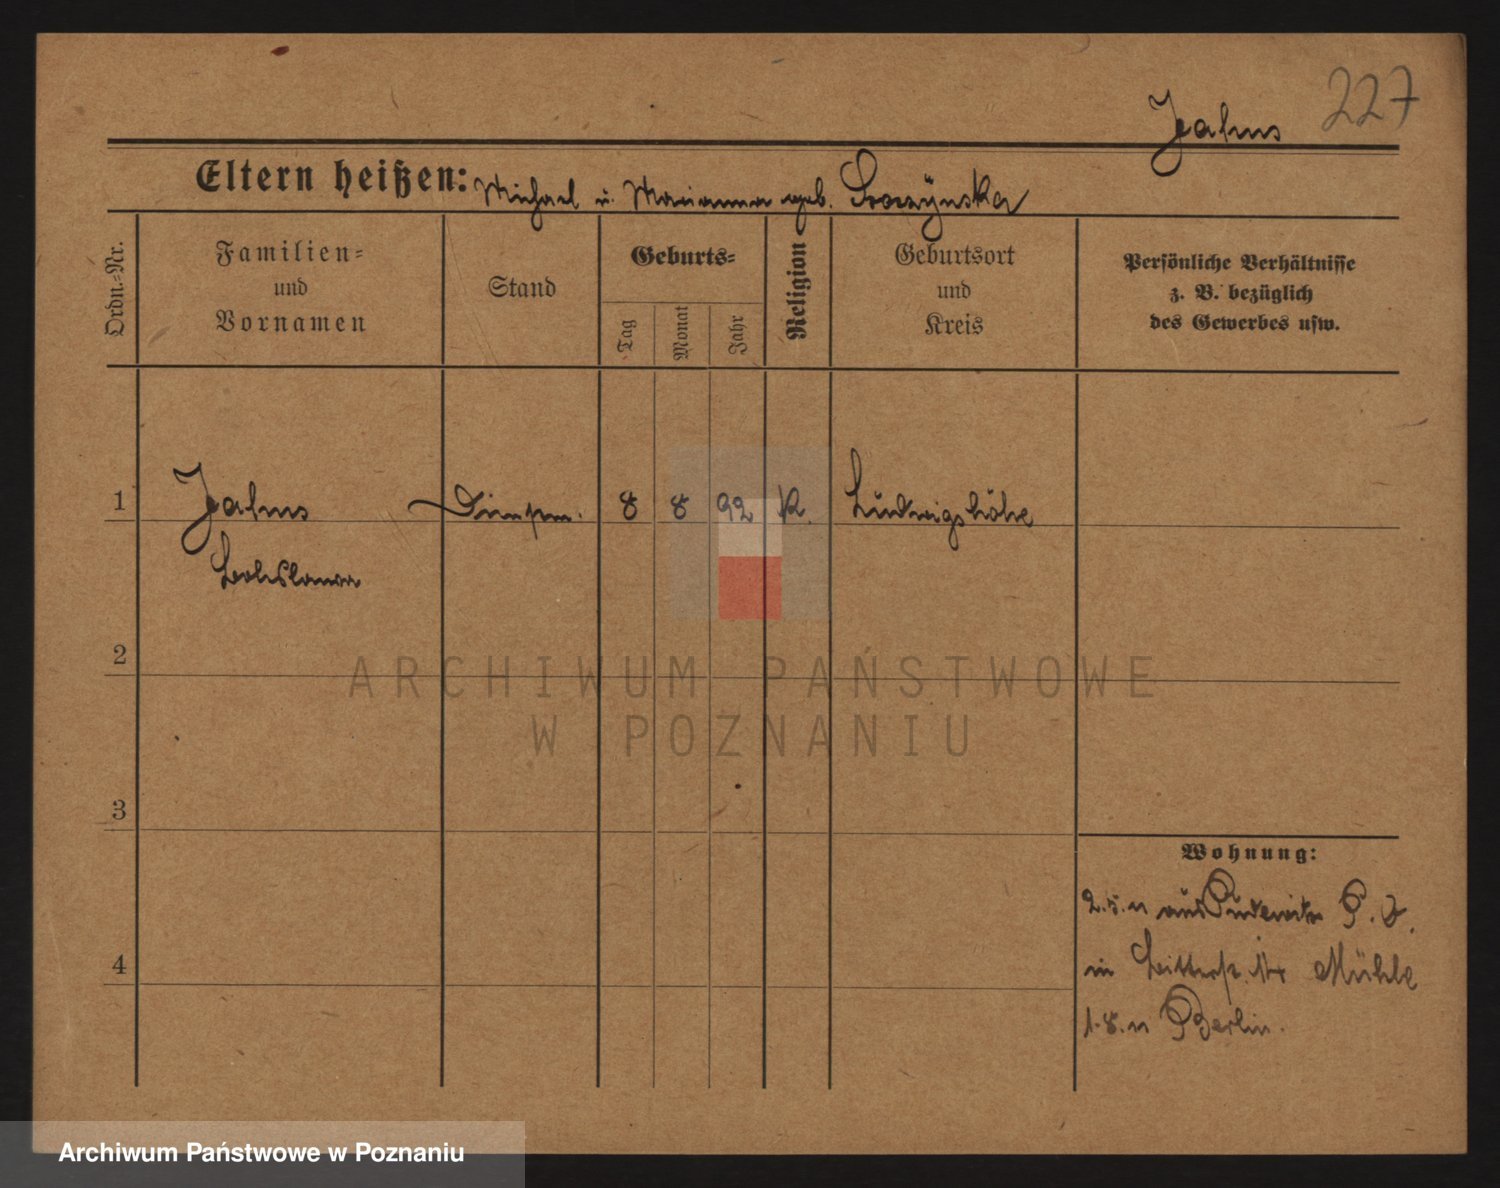 227
Jahns
Eltern heißen: Michael u. Marianna geb.
Ordn.=Nr.
Familien=
und
Vornamen
Stand
Geburts=
Tag
Monat
Jahr
Religion
Geburtsort
und
Kreis
Persönliche Verhältnisse
z. B. bezüglich
des Gewerbes usw.
1 Jahns 8 8 92 K. Ludwigshöhe
Boleslawa
2
3
4
Wohnung:
2.5.11 aus Pudewitz P. O.
in Mühle
1.8.11 Berlin.
ARCHIWUM PAŃSTWOWE
W POZNANIU
Archiwum Państwowe w Poznaniu